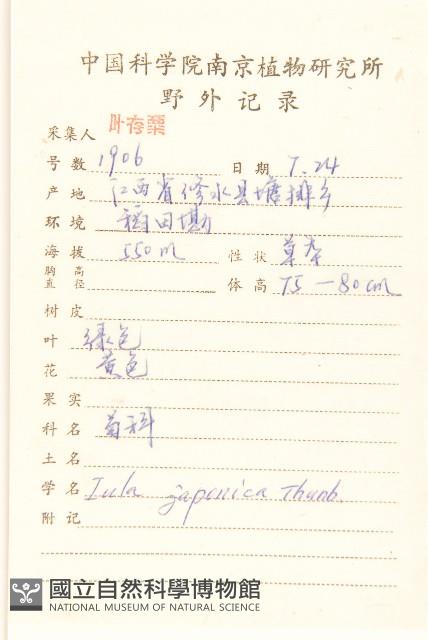 中国科学院南京植物研究所
野外记录
采集人 叶存粟
号数 1906 日期 7.24
产地 江西省修水县塘排乡
环境 稻田墈
海拔 550m 性状 草本
胸高直径 体高 75—80cm
树皮
叶 绿色
花 黄色
果实
科名 菊科
土名
学名 Iula japonica Thunb.
附记
國立自然科學博物館
NATIONAL MUSEUM OF NATURAL SCIENCE